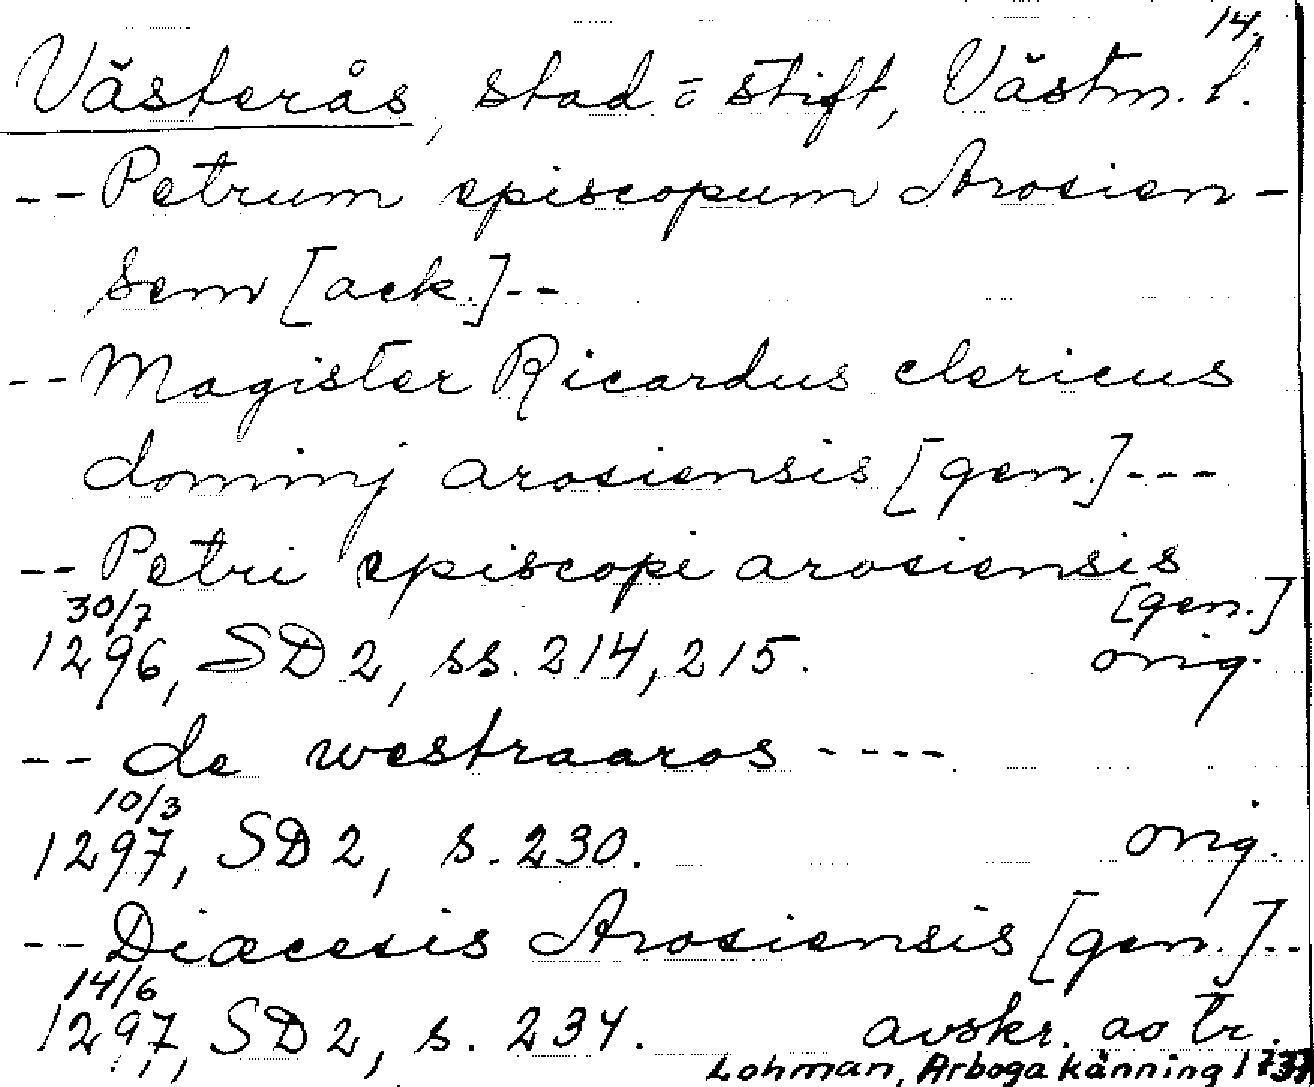 14.
Västerås, stad o stift, Västm. l.
-- Petrum episcopum Arosien-
sem [ack.]--
-- Magister Ricardus clericus
dominj arosiensis [gen.]---
-- Petri episcopi arosiensis
[gen.]
30/7
1296, SD 2, ss. 214, 215. orig.
-- de westraaros ----
10/3
1297, SD 2, s. 230. orig.
-- Diæcesis Arosiensis [gen.]--
14/6
1297, SD 2, s. 234. avskr. ao tr.
Lohman, Arboga känning